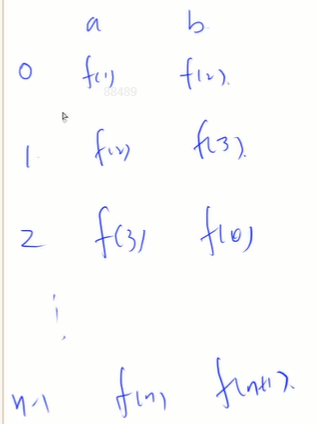 a b
0 f(1) f(2).
88489
1. f(2) f(3).
2 f(3) f(0)
n-1 f(n) f(n+1).